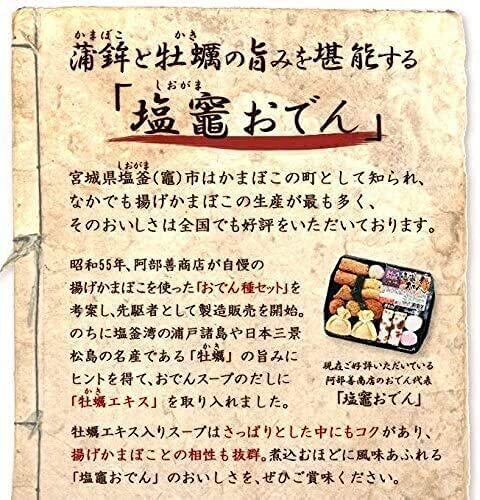 かまぼこ かき
蒲鉾と牡蠣の旨みを堪能する
しおがま
「塩竈おでん」
しおがま
宮城県塩釜(竈)市はかまぼこの町として知られ、
なかでも揚げかまぼこの生産が最も多く、
そのおいしさは全国でも好評をいただいております。
昭和55年、阿部善商店が自慢の
揚げかまぼこを使った「おでん種セット」を
考案し、先駆者として製造販売を開始。
のちに塩釜湾の浦戸諸島や日本三景
かき
松島の名産である「牡蠣」の旨みに
ヒントを得て、おでんスープのだしに
かき
「牡蠣エキス」を取り入れました。
現在ご好評いただいている
阿部善商店のおでん代表
「塩竈おでん」
牡蠣エキス入りスープはさっぱりとした中にもコクがあり、
揚げかまぼことの相性も抜群。煮込むほどに風味あふれる
「塩竈おでん」のおいしさを、ぜひご賞味ください。